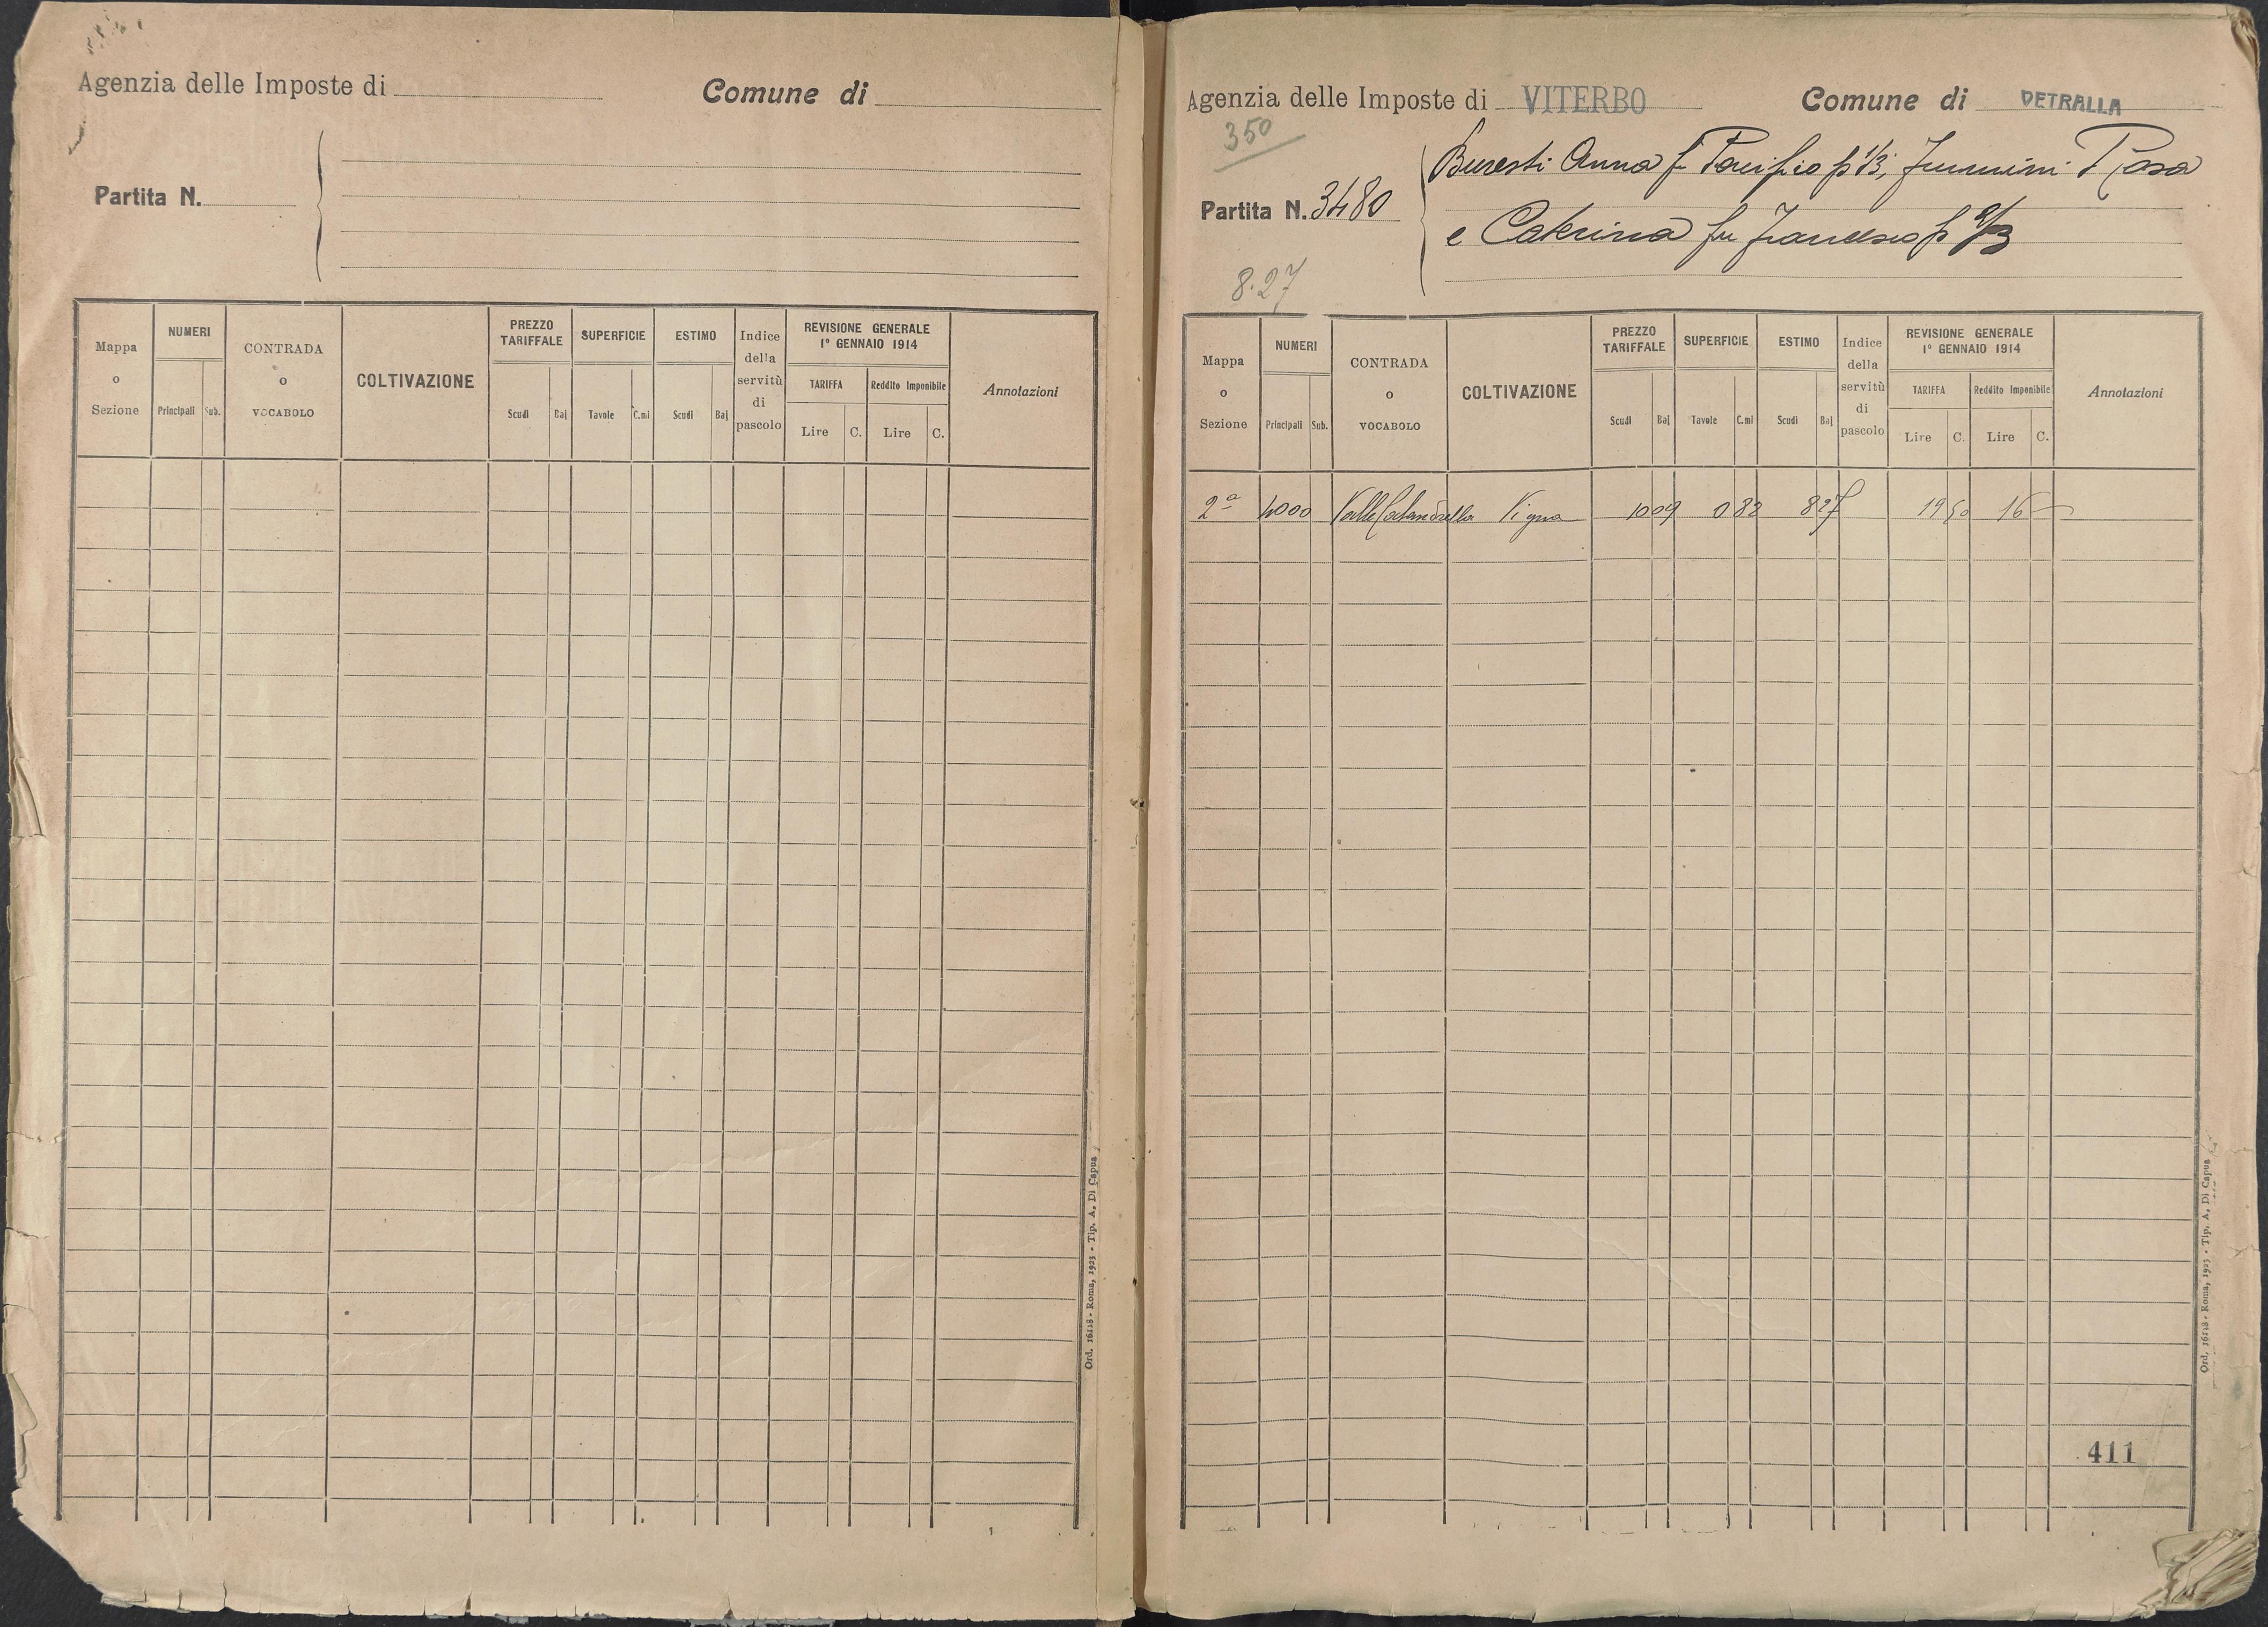 Agenzia delle Imposte di
Comune di
Partita N.
Mappa o Sezione
NUMERI
Principali Sub.
CONTRADA o VOCABOLO
COLTIVAZIONE
PREZZO TARIFFALE
Scudi Baj
SUPERFICIE
Tavole C.mi
ESTIMO
Scudi Baj
Indice della servitù di pascolo
REVISIONE GENERALE
1° GENNAIO 1914
TARIFFA
Lire C.
Reddito Imponibile
Lire C.
Annotazioni
Ord. 16118 - Roma, 1923 - Tip. A. Di Capua
Agenzia delle Imposte di VITERBO
Comune di VETRALLA
350
Partita N. 3480
Buresti Anna fu Pacifico p 1/3; Rosa
e Caterina fu Francesco p 2/3
8.27
Mappa o Sezione
NUMERI
Principali Sub.
CONTRADA o VOCABOLO
COLTIVAZIONE
PREZZO TARIFFALE
Scudi Baj
SUPERFICIE
Tavole C.mi
ESTIMO
Scudi Baj
Indice della servitù di pascolo
REVISIONE GENERALE
1° GENNAIO 1914
TARIFFA
Lire C.
Reddito Imponibile
Lire C.
Annotazioni
2a 4000 Valle Calandrella Vigna 10 09 0 82 8 27 19 50 16 —
411
Ord. 16118 - Roma, 1923 - Tip. A. Di Capua